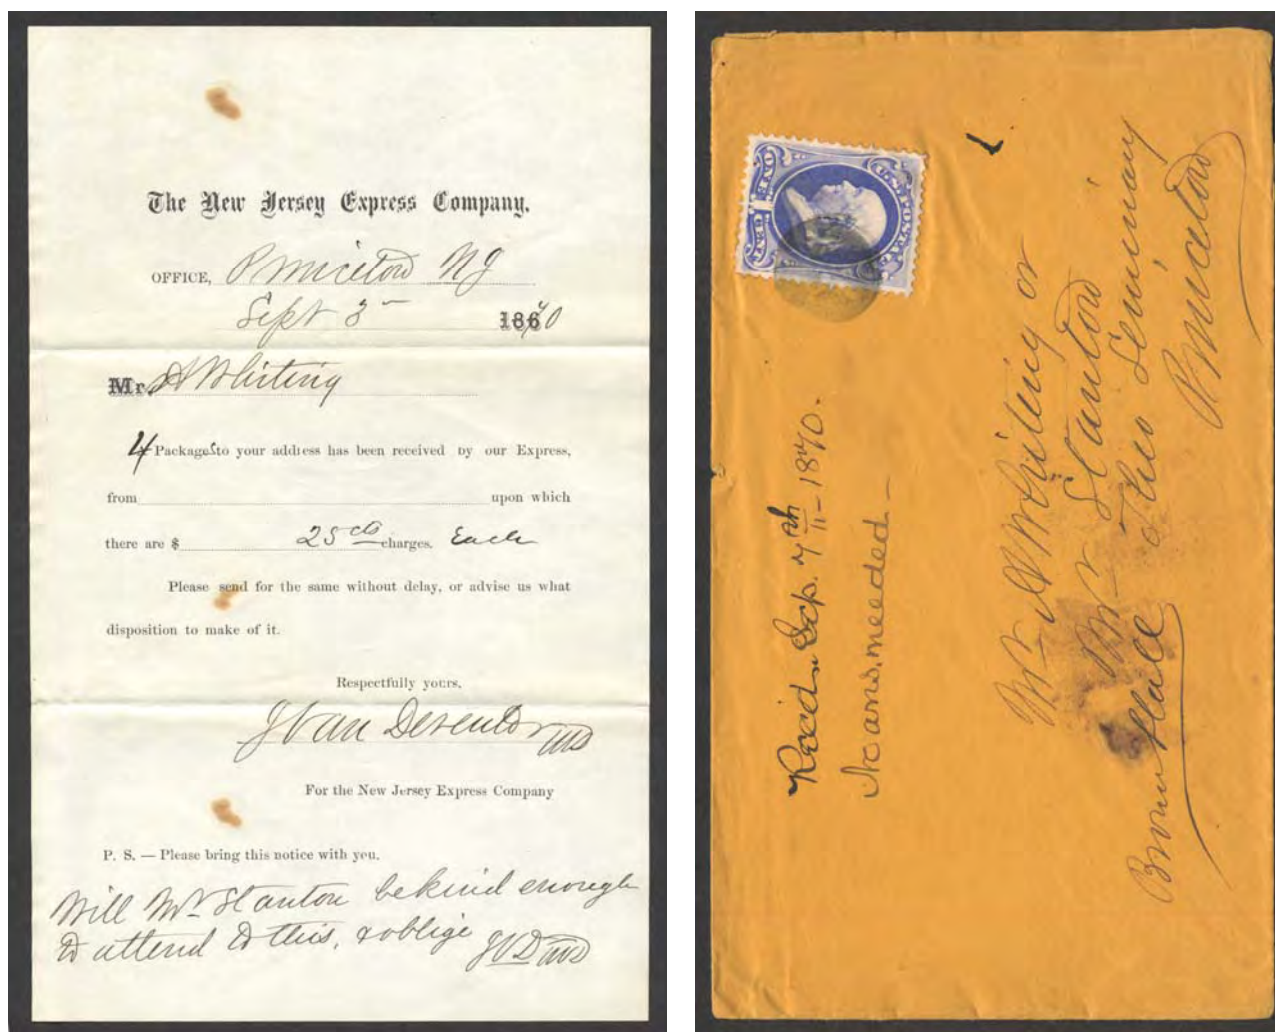 The New Jersey Express Company.
OFFICE, Princeton NJ
Sept 3 1870
Mr. A Whiting
4 Packages to your address has been received by our Express,
from upon which
there are $ 25 cts charges. Each
Please send for the same without delay, or advise us what
disposition to make of it.
Respectfully yours,
J Van Deventer
For the New Jersey Express Company
P. S. — Please bring this notice with you.
Will Mr Stanton be kind enough
to attend to this, & oblige JVD
U.S. POSTAGE
ONE 1 CENT
Mr A Whiting or
Mr Stanton
Theo Seminary
Princeton
Brown Hall
Recd. Sep. 7th 1870.
No ans. needed —